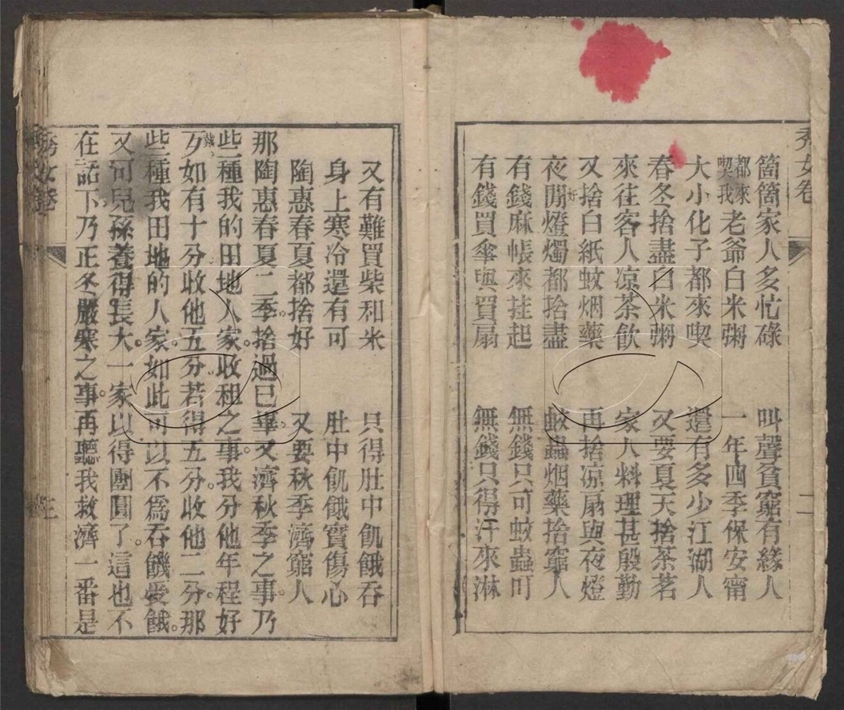 秀女卷
二
箇箇家人多忙碌 叫聲貧窮有緣人
都來喫我老爺白米粥 一年四季保安甯
大小化子都來喫 還有多少江湖人
春冬捨盡白米粥 又要夏天捨茶茗
來往客人凉茶飲 家人料理甚殷勤
又捨白紙蚊烟藥 再捨凉扇與夜燈
夜間燈燭都捨盡 蚊蟲烟藥捨窮人
有錢麻帳來挂起 無錢只可蚊蟲叮
有錢買傘與買扇 無錢只得汗來淋
又有難買柴和米 只得肚中飢餓吞
身上寒冷還有可 肚中飢餓實傷心
陶惠春夏都捨好 又要秋季濟窮人
那陶惠春夏二季。捨過已畢。又濟秋季之事。乃
些種我的田地人家。收租之事。我分他年程好
歹。如有十分收他五分。若得五分。收他二分。那
些種我田地的人家。如此可以不爲吞饑受餓。
又可兒孫養得長大。一家以得團圓了。這也不
在話下。乃正冬嚴寒之事。再聽我救濟一番是
秀女卷
三